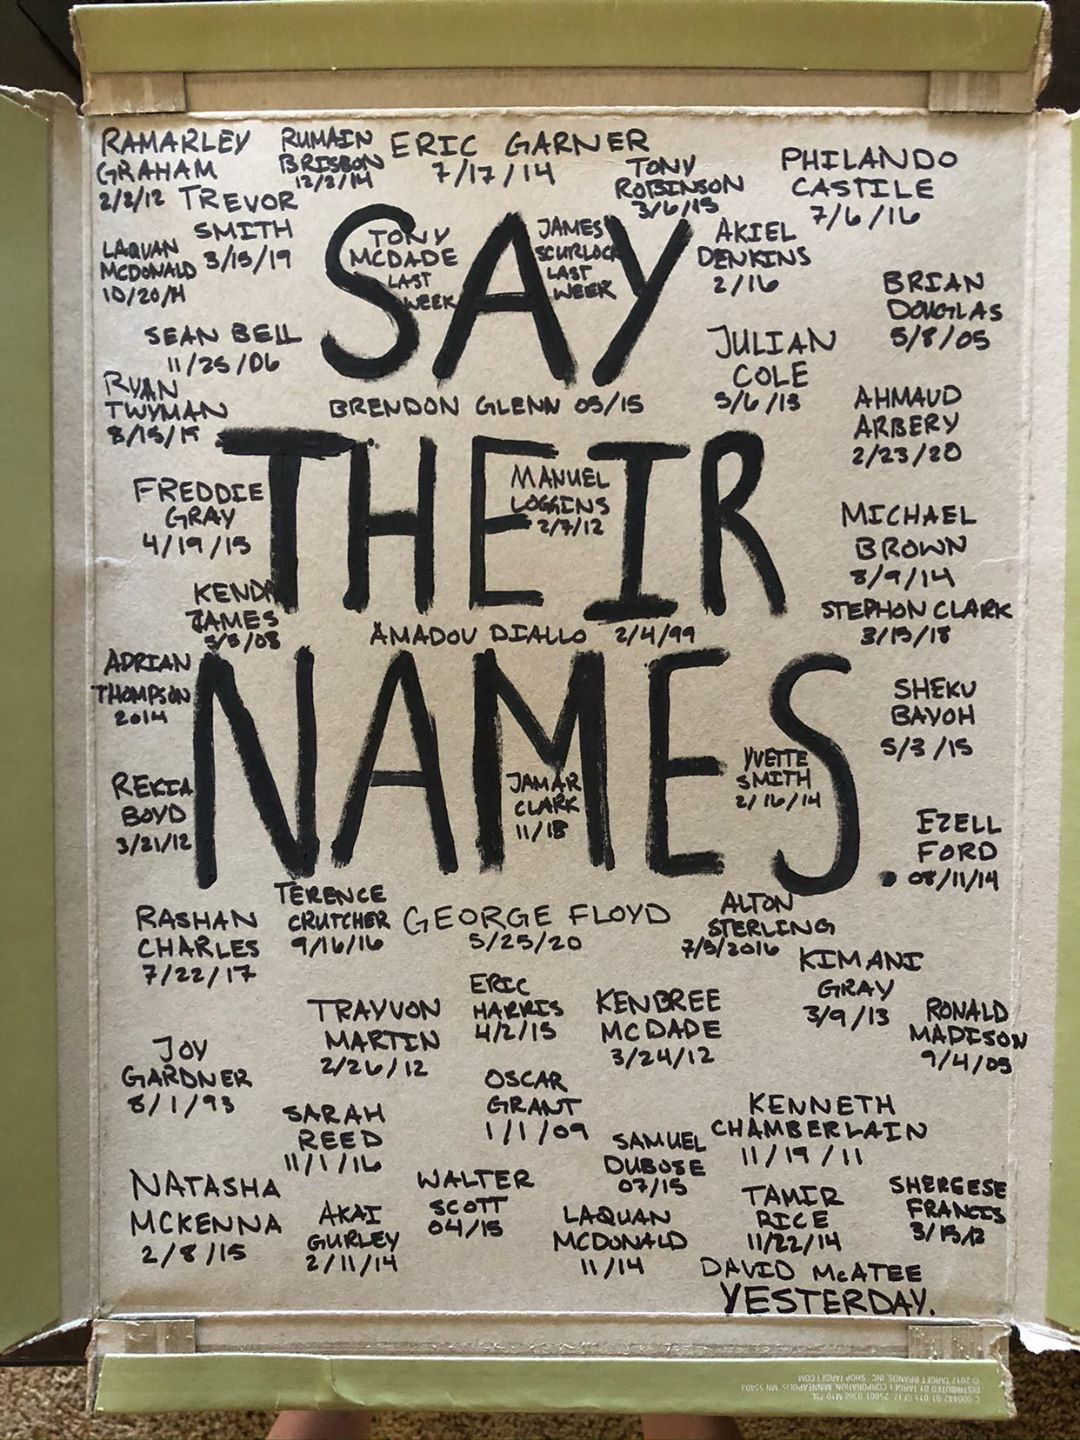 RAMARLEY
GRAHAM
2/2/12
RUMAIN
BRISBON
12/2/14
ERIC GARNER
7/17/14
TONY
ROBINSON
3/6/15
PHILANDO
CASTILE
7/6/16
TREVOR
SMITH
3/15/19
LAQUAN
MCDONALD
10/20/14
TONY
MCDADE
LAST
WEEK
JAMES
SCURLOCK
LAST
WEEK
AKIEL
DENKINS
2/16
BRIAN
DOUGLAS
5/8/05
SAY
SEAN BELL
11/25/06
JULIAN
COLE
5/6/13
RYAN
TWYMAN
BRENDON GLENN 05/15
AHMAUD
ARBERY
2/23/20
THEIR
FREDDIE
GRAY
4/19/15
MANUEL
LOGGINS
2/7/12
MICHAEL
BROWN
8/9/14
KENDR
JAMES
AMADOU DIALLO 2/4/99
STEPHON CLARK
3/15/18
ADRIAN
THOMPSON
2014
NAMES
SHEKU
BAYOH
5/3/15
REKIA
BOYD
3/21/12
JAMAR
CLARK
11/15
YVETTE
SMITH
2/16/14
EZELL
FORD
08/11/14
RASHAN
CHARLES
7/22/17
TERENCE
CRUTCHER
9/16/16
GEORGE FLOYD
5/25/20
ALTON
STERLING
7/5/2016
KIMANI
GRAY
3/9/13
TRAYVON
MARTIN
2/26/12
ERIC
HARRIS
4/2/15
KENDREE
MCDADE
3/24/12
RONALD
MADISON
9/4/05
JOY
GARDNER
8/1/93
OSCAR
GRANT
1/1/09
SARAH
REED
11/1/16
SAMUEL
DUBOSE
07/15
KENNETH
CHAMBERLAIN
11/19/11
NATASHA
MCKENNA
2/8/15
AKAI
GURLEY
2/11/14
WALTER
SCOTT
04/15
LAQUAN
MCDONALD
11/14
TAMIR
RICE
11/22/14
SHERGESE
FRANCIS
DAVID McATEE
YESTERDAY.
© 2017 TARGET BRANDS, INC. SHOP TARGET.COM
DISTRIBUTED BY TARGET CORPORATION, MINNEAPOLIS, MN 55403